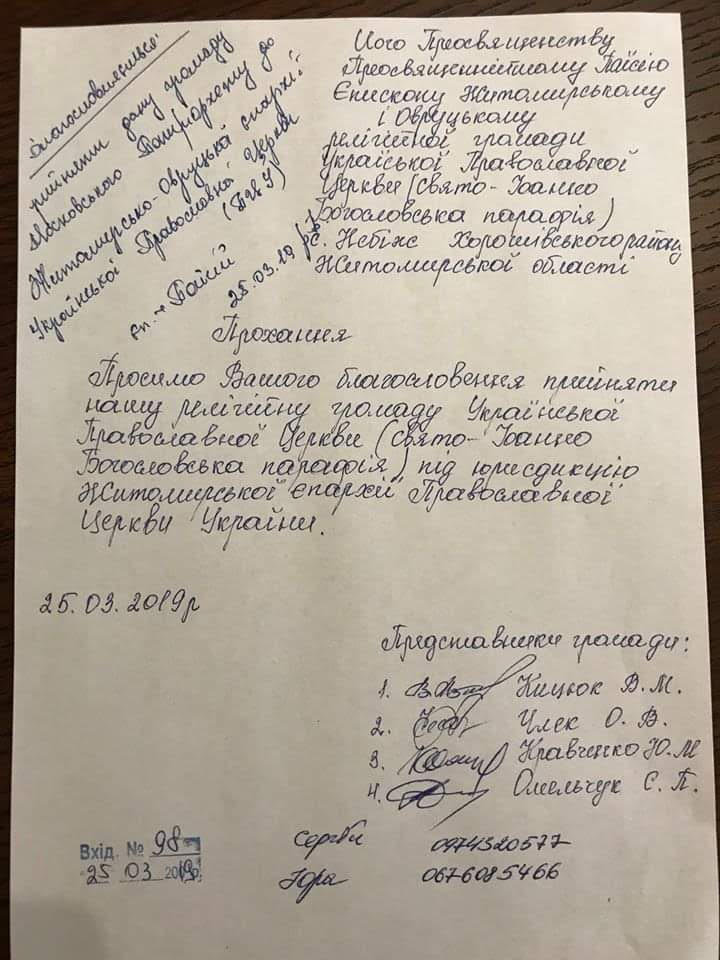 Благословляється
прийняти дану громаду
Московського Патріархату до
Житомирсько-Овруцької єпархії
Української Православної Церкви
(ПЦУ)
еп. + Паісій
25.03.19 р.
Його Преосвященству
Преосвященнійшому Паїсію
Єпископу Житомирському
і Овруцькому
релігійної громади
Української Православної
Церкви (свято-Іоанно
Богословська парафія)
с. Небіж Хорошівського району
Житомирської області
Прохання
Просимо Вашого благословення прийняти
нашу релігійну громаду Української
Православної Церкви (свято-Іоанно
Богословська парафія) під юрисдикцію
Житомирської єпархії Православної
Церкви України.
25.03.2019р
Представники громади:
1. Кицюк В.М.
2. Члек О.В.
3. Кравченко Ю.М
4. Омельчук С.П.
Вхід. № 98
25 03 2019р.
Сергій 0974320577
Юра 0676085466